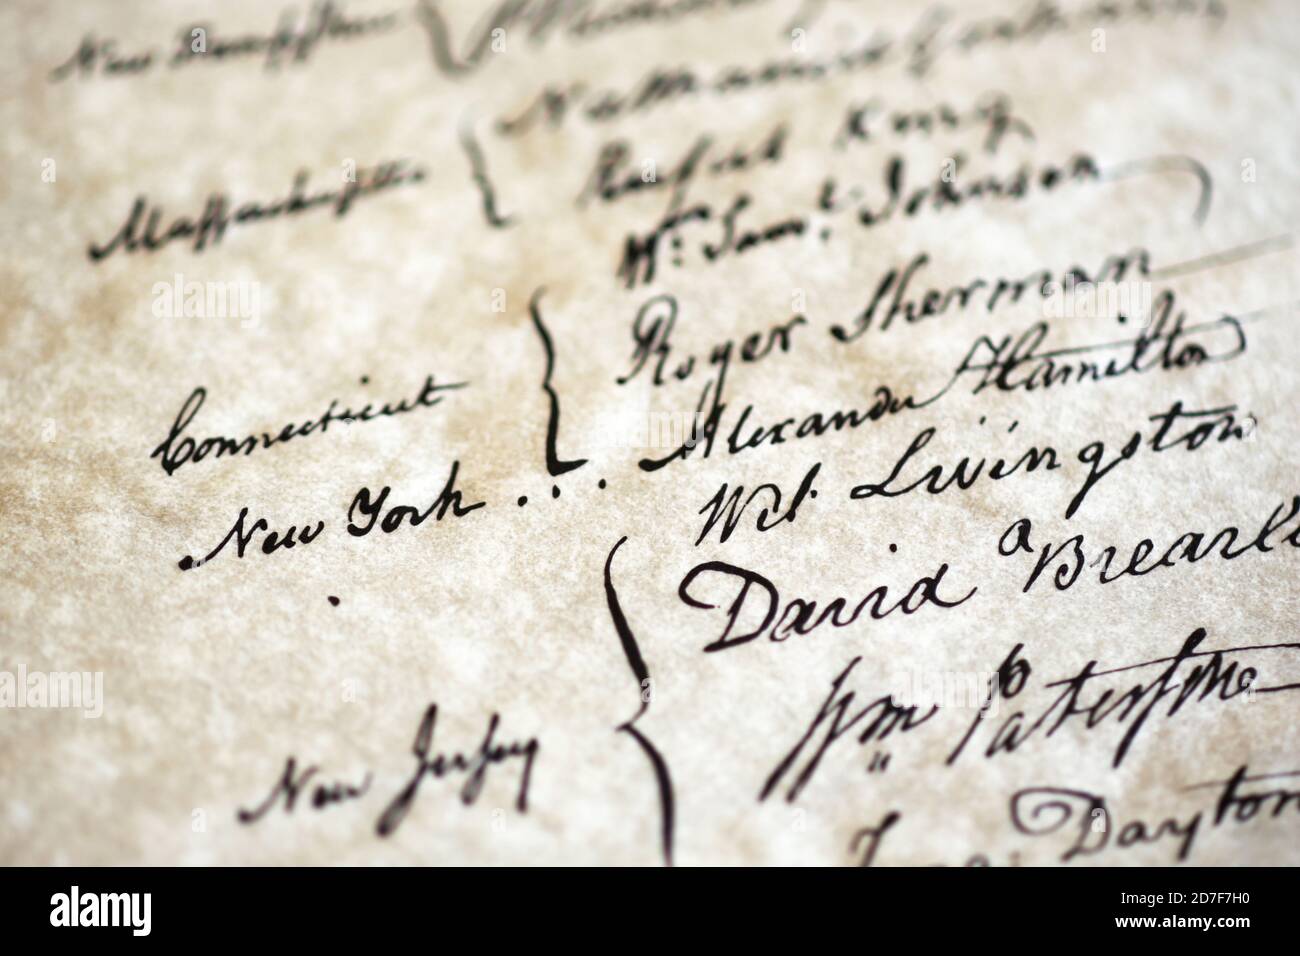 New Hampshire {
Massachusetts { Nathaniel Gorham
Rufus King
Connecticut { Wm. Saml. Johnson
Roger Sherman
New York ... Alexander Hamilton
New Jersey { Wil. Livingston
David Brearl
Wm Paterson
Jona: Dayton
alamy
Image ID: 2D7F7H0
www.alamy.com